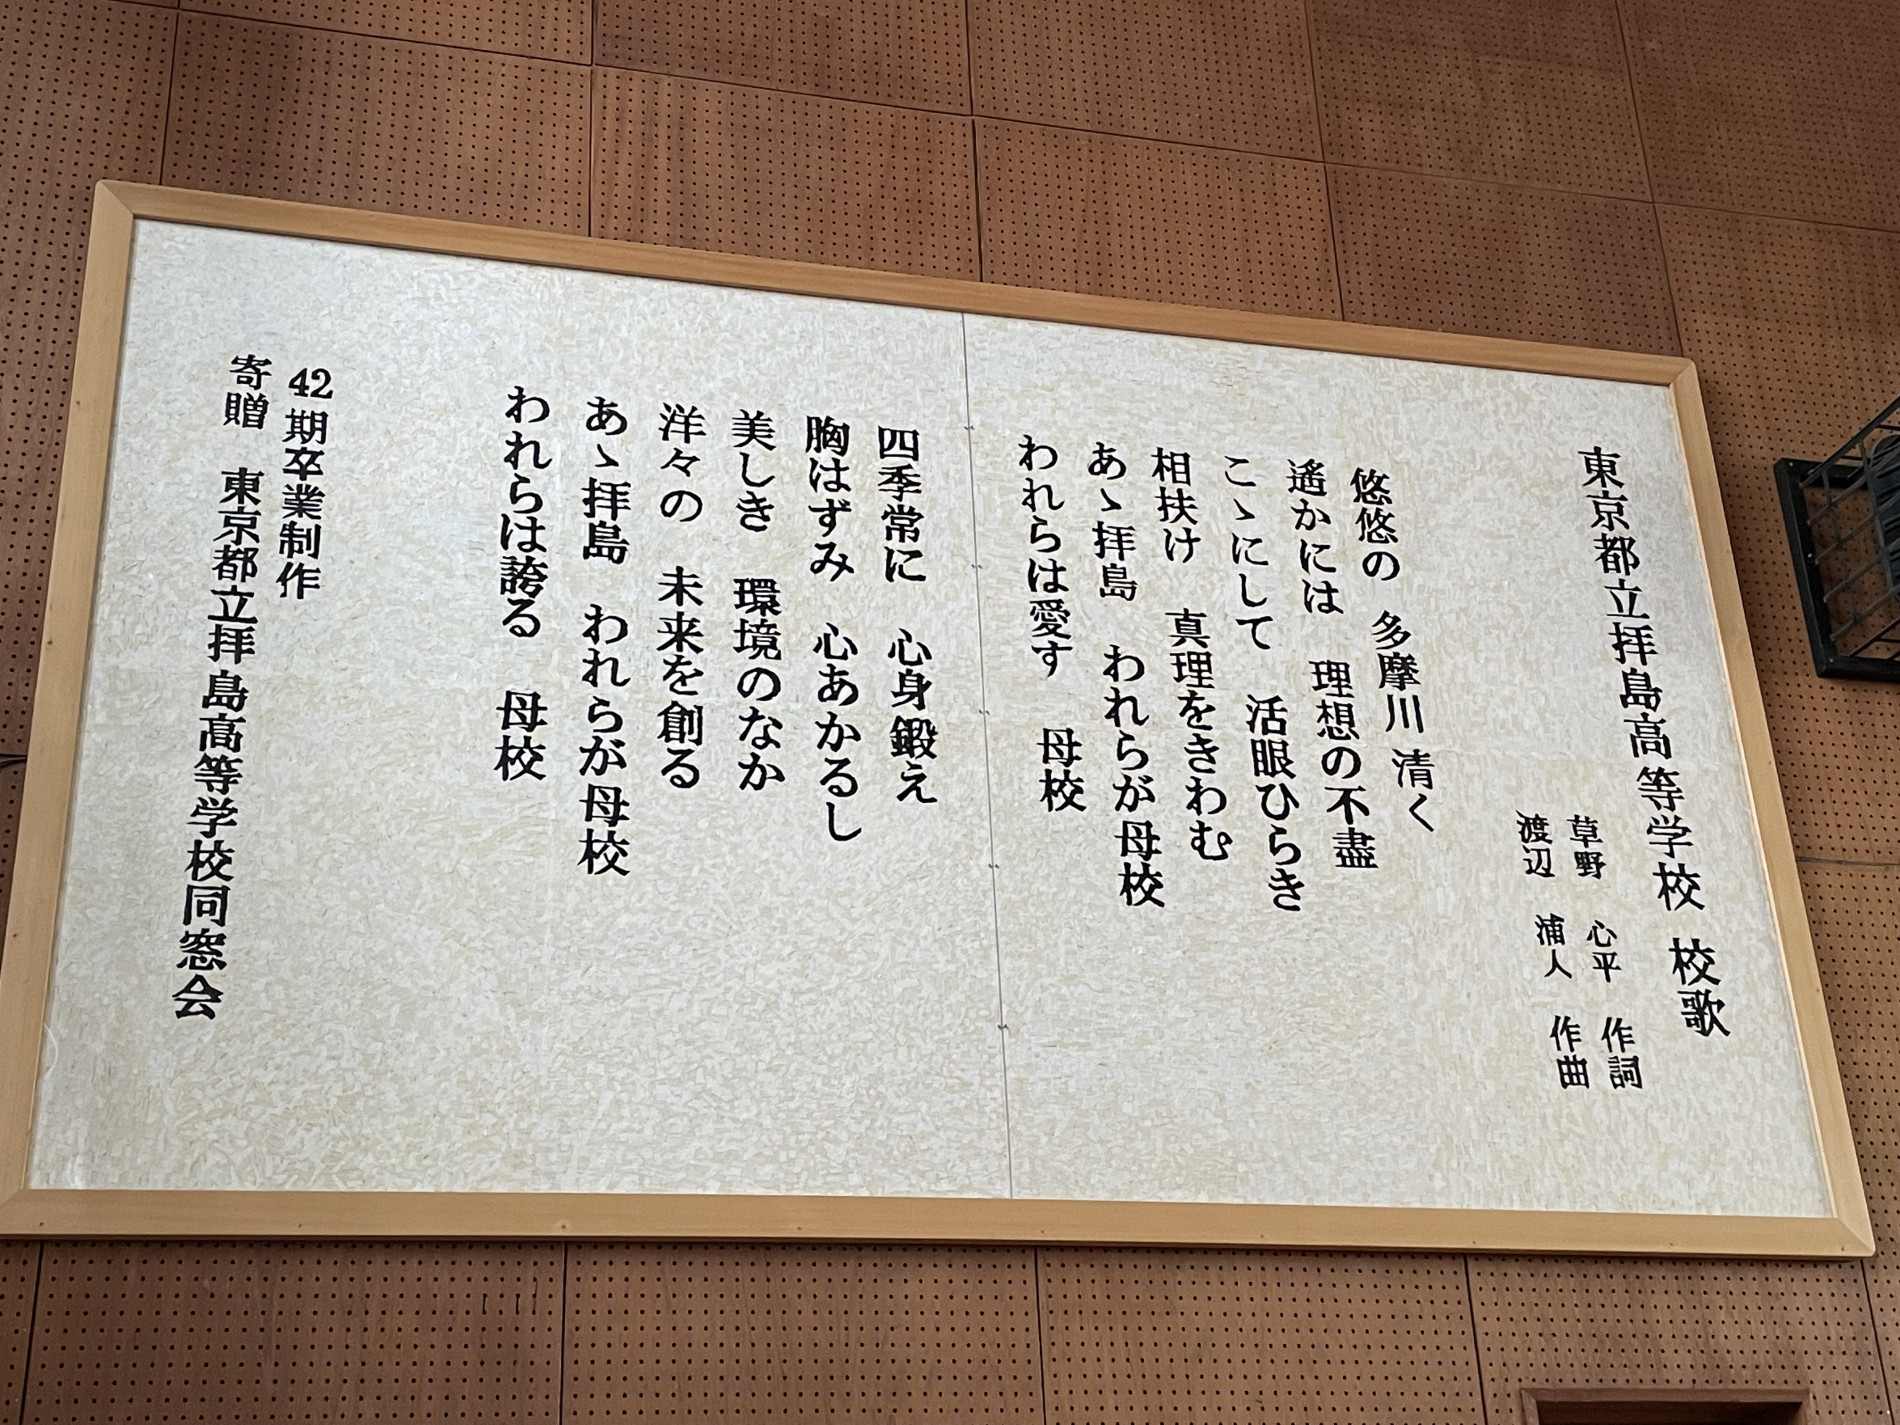 東京都立拝島高等学校 校歌
草野 心平 作詞
渡辺 浦人 作曲
悠悠の 多摩川 清く
遙かには 理想の不盡
こゝにして 活眼ひらき
相扶け 真理をきわむ
あゝ拝島 われらが母校
われらは愛す 母校
四季常に 心身鍛え
胸はずみ 心あかるし
美しき 環境のなか
洋々の 未来を創る
あゝ拝島 われらが母校
われらは誇る 母校
42期卒業制作
寄贈 東京都立拝島高等学校同窓会